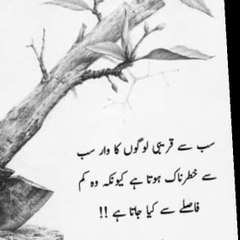 سب سے قریبی لوگوں کا وار سب
سے خطرناک ہوتا ہے کیونکہ وہ کم
فاصلے سے کیا جاتا ہے !!